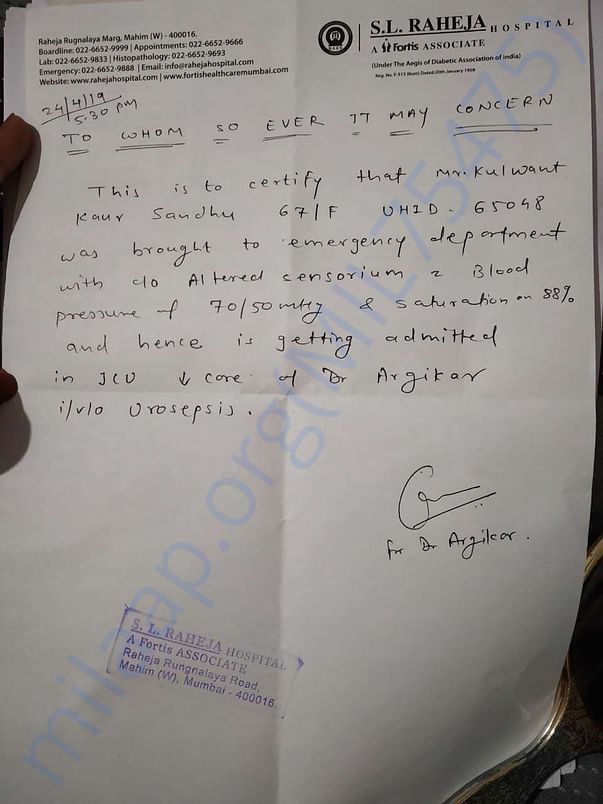 Raheja Rugnalaya Marg, Mahim (W) - 400016.
Boardline: 022-6652-9999 | Appointments: 022-6652-9666
Lab: 022-6652-9833 | Histopathology: 022-6652-9693
Emergency: 022-6652-9888 | Email: info@rahejahospital.com
Website: www.rahejahospital.com | www.fortishealthcaremumbai.com
S.L. RAHEJA HOSPITAL
A Fortis ASSOCIATE
(Under The Aegis of Diabetic Association of India)
Reg. No. F-513 (Bom) Dated:20th January 1968
24/4/19
5.30 pm
TO WHOM SO EVER IT MAY CONCERN
This is to certify that Mr. Kulwant
Kaur Sandhu 67/F UHID - 65048
was brought to emergency department
with c/o Altered censorium c Blood
pressure of 70/50 mHg & saturation on 88%
and hence is getting admitted
in ICU ↓ care of Dr Argikar
i/v/o Urosepsis.
for Dr Argikar.
S. L. RAHEJA HOSPITAL
A Fortis ASSOCIATE
Raheja Rungnalaya Road,
Mahim (W), Mumbai - 400016.
milaap.org(MIL75475)